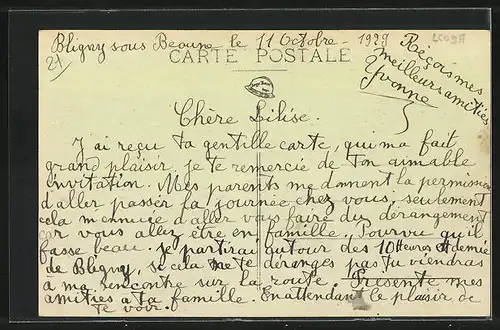 Bligny sous Beaune le 11 Octobre 1929
21
CARTE POSTALE
Reçois mes
meilleurs amitiés
Yvonne
Chère Lilise.
J'ai reçu ta gentille carte, qui ma fait
grand plaisir, je te remercie de ton aimable
invitation. Mes parents me donnent la permission
d'aller passer la journée chez vous, seulement
cela m'ennuie d'aller vous faire du dérangement
car vous allez être en famille. Pourvu qu'il
fasse beau. je partirai autour des 10 Heures et demie
de Bligny, si cela ne te déranges pas tu viendras
à ma rencontre sur la route. Présente mes
amitiés à ta famille. En attendant le plaisir de
te voir.